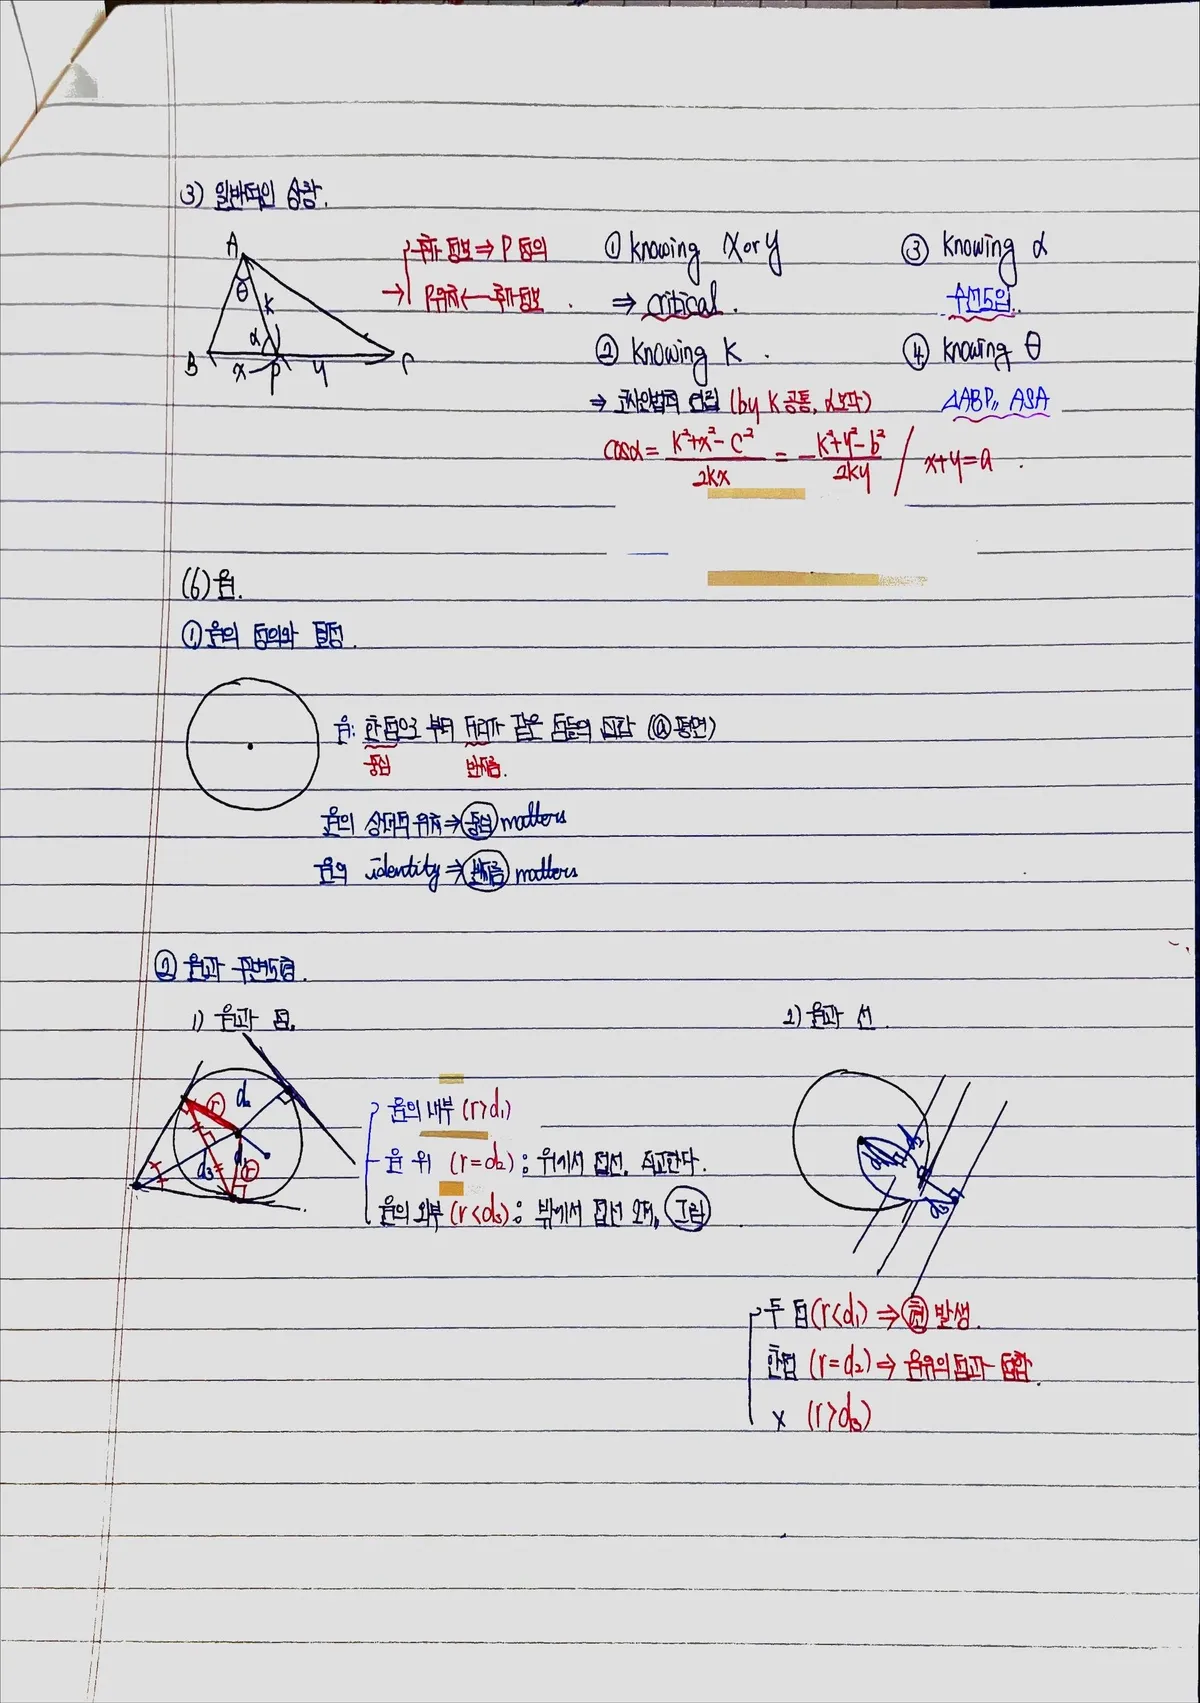 (3) 일반적인 상황.
A
θ
k
α
B
x
P
y
C
추가 정보 ⇒ P 정의
→ P위치 ← 추가정보.
① knowing x or y
⇒ critical.
② knowing k.
⇒ 코사인법칙 연립 (by k 공통, α보각)
cosα = k²+x²-c² / 2kx = - k²+y²-b² / 2ky / x+y=a.
③ knowing α
④ knowing θ
△ABP, ASA
(6) 원.
① 원의 정의와 결정.
원: 한점으로 부터 거리가 같은 점들의 집합 (@평면)
중심 반지름.
원의 상대적 위치 ⇒ 중심 matters
원의 identity ⇒ 반지름 matters
② 원과 주변도형.
1) 원과 점.
r
d₂
d₃
r
원의 내부 (r>d₁)
원 위 (r=d₂): 위에서 접선, 직교한다.
원의 외부 (r<d₃): 밖에서 접선 2개, 그림
2) 원과 선.
d₂
d₃
두 점 (r<d₁) ⇒ 현 발생.
한점 (r=d₂) ⇒ 원위의 점과 접합.
x (r>d₃)